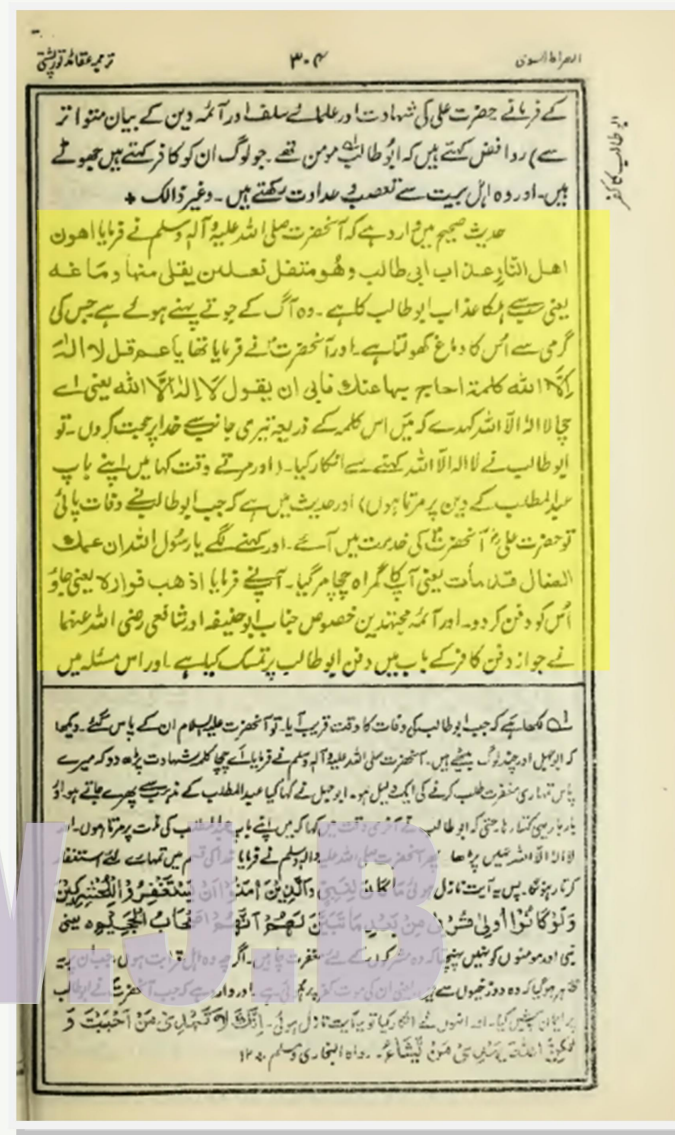 الصراط السوی
۳۰۴
ترجمہ عقائد تورپشتی
ابوطالب کا کفر
کے فرمانے حضرت علی کی شہادت اور علمائے سلف اور آئمہ دین کے بیان متواتر
سے) روافض کہتے ہیں کہ ابُو طالب مومن تھے۔ جو لوگ ان کو کافر کہتے ہیں جھوٹے
ہیں۔ اور وہ اہل بیت سے تعصب و عداوت رکھتے ہیں۔ وغیر ذالک +
حدیث صحیح میں وارد ہے کہ آنحضرت صلی اللہ علیہ وآلہ وسلم نے فرمایا اھون
اھل النار عذاب ابی طالب وھُو متنعل نعلین یغلی منھا دماغہ
یعنی سب سے ہلکا عذاب ابو طالب کا ہے۔ وہ آگ کے جوتے پہنے ہوئے ہے جس کی
گرمی سے اُس کا دماغ کھولتا ہے۔ اور آنحضرت نے فرمایا تھا یا عم قل لا الٰہ
الا اللہ کلمۃ احاج بہا عنک فابی ان یقول لا الٰہ الا اللہ یعنی اے
چچا لا الہ الا اللہ کہدے کہ میں اس کلمہ کے ذریعہ تیری جانب سے خدا پر حجت کروں۔ تو
ابو طالب نے لا الہ الا اللہ کہنے سے انکار کیا۔ (اور مرتے وقت کہا میں اپنے باپ
عبدالمطلب کے دین پر مرتا ہوں) اور حدیث میں ہے کہ جب ابو طالب نے وفات پائی
تو حضرت علی آنحضرت کی خدمت میں آئے۔ اور کہنے لگے یا رسُول اللہ ان عمک
الضال قد مات یعنی آپ کا گمراہ چچا مر گیا۔ آپ نے فرمایا اذھب فوارہ یعنی جاؤ
اُس کو دفن کر دو۔ اور آئمہ مجتہدین خصوص جناب ابو حنیفہ اور شافعی رضی اللہ عنہما
نے جواز دفن کافر کے باب میں دفن ابو طالب پر تمسک کیا ہے۔ اور اس مسئلہ میں
لکھا ہے کہ جب ابو طالب کی وفات کا وقت قریب آیا۔ تو آنحضرت علیہ السلام ان کے پاس گئے۔ دیکھا
کہ ابو جہل اور چند لوگ بیٹھے ہیں۔ آنحضرت صلی اللہ علیہ وآلہ وسلم نے فرمایا اے چچا کلمہ شہادت پڑھ دو کہ میرے
پاس تمہاری مغفرت طلب کرنے کی ایک دلیل ہو۔ ابو جہل نے کہا کیا عبدالمطلب کے مذہب سے پھرے جاتے ہو اؤ
بار بار یہی کہتا رہا حتیٰ کہ ابو طالب نے آخری وقت میں کہا کہ میں اپنے باپ عبدالمطلب کی ملت پر مرتا ہوں۔ اور
لا الہ الا اللہ نہیں پڑھا پھر آنحضرت صلی اللہ علیہ وآلہ وسلم نے فرمایا خدا کی قسم میں تمہارے لئے استغفار
کرتا رہونگا۔ پس یہ آیت نازل ہوئی مَا کَانَ لِلنَّبِیِّ وَالَّذِیْنَ اٰمَنُوْا اَنْ یَّسْتَغْفِرُوْا لِلْمُشْرِکِیْنَ
وَلَوْ کَانُوْا اُولِیْ قُرْبٰی مِنْ بَعْدِ مَا تَبَیَّنَ لَھُمْ اَنَّھُمْ اَصْحَابُ الْجَحِیْمِ یعنی
نبی اور مومنوں کو نہیں پہنچتا کہ وہ مشرکوں کے لئے مغفرت چاہیں۔ اگرچہ وہ اہل قرابت ہوں جب ان پر
ظاہر ہو گیا کہ وہ دوزخیوں سے ہیں یعنی ان کی موت کفر پر ہوئی ہے۔ اور وارد ہے کہ جب آنحضرت نے ابو طالب
پر ایمان پیش کیا۔ اور انہوں نے انکار کیا تو یہ آیت نازل ہوئی۔ اِنَّکَ لَا تَھْدِیْ مَنْ اَحْبَبْتَ وَ
لٰکِنَّ اللہَ یَھْدِیْ مَنْ یَّشَآءُ۔ رواہ البخاری ومسلم ۱۲
W.J.B